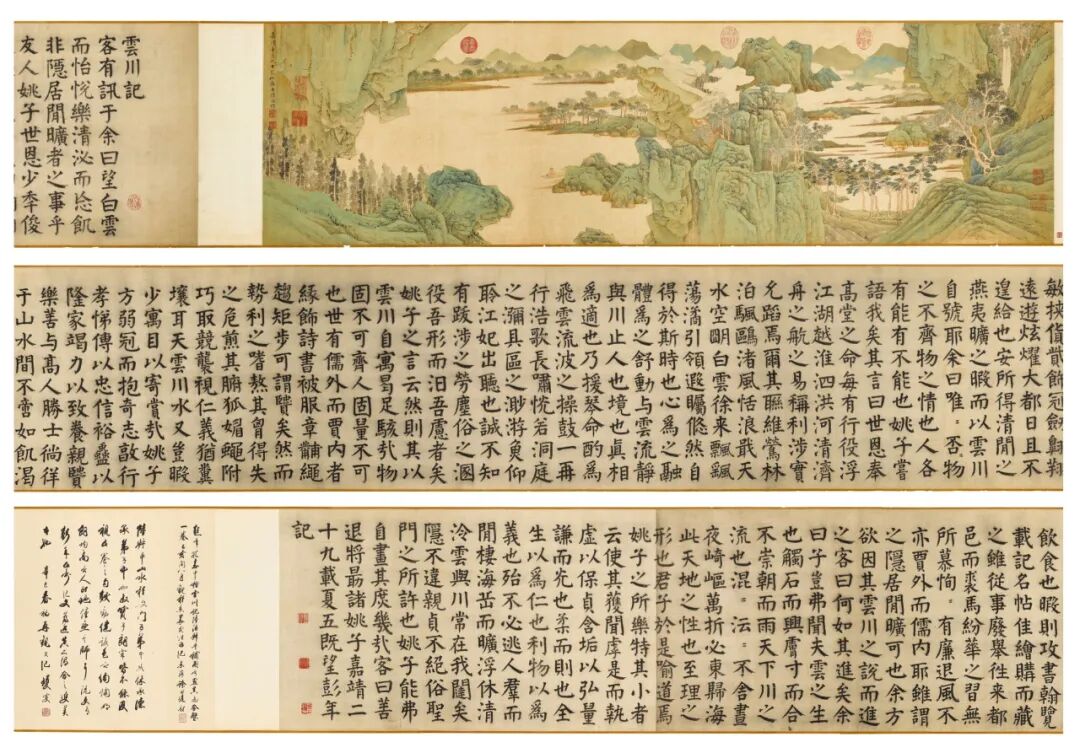 雲川記
客有訊于余曰望白雲
而怡悅樂清泌而忘飢
非隱居閒曠者之事乎
友人姚子世恩少年俊
敏挾貨貲飾冠劍翱翔
遠遊炫燿大都日且不
遑給也安所得清閒之
燕夷曠之暇而以雲川
自號耶余曰唯〻否物
之不齊物之情也人各
有能有不能也姚子嘗
語我矣其言曰世恩奉
高堂之命每有行役浮
江湖越淮泗洪河清濟
舟之航之易稱利涉實
允蹈焉爾其聯維鶯林
泊颿鷗渚風恬浪天
水空明白雲徐來飄飄
蕩引領遐矚悠然自
得於斯時也心為之融
體為之舒動與雲流靜
與川止人也境也真相
為適也乃援琴命酌為
飛雲流波之操鼓一再
行浩歌長嘯恍若洞庭
之瀰具區之渺游仰
聆江妃出聽也誠不知
有跋涉之勞塵俗之溷
役吾形而汩吾慮者矣
姚子之言云然則其以
雲川自寓曷足駭㢤物
固不可齊人固量不可
也世有儒外而賈内者
緣飾詩書被服章黼繩
趨矩步可謂賢矣然而
勢利之嗜熱其胷得失
之危煎其腑狐媚蠅附
巧取競襲視仁義猶糞
壤耳天雲川水又豈暇
少寓目以寄賞㢤姚子
方弱冠而抱奇志敦行
孝悌傳以忠信裕蠱以
隆家竭力以致養親賢
樂善与高人勝士徜徉
于山水間不啻如飢渴
飲食也暇則攻書翰覽
載記名帖佳繪購而藏
之雖從事廢舉往來都
邑而裘馬紛華之習無
所慕恂〻有廉退風不
亦賈外而儒内耶雖謂
之隱居閒曠可也余方
欲因其雲川之說而進
之客曰何如其進矣余
曰子豈弗聞夫雲之生
也觸石而興膚寸而合
不崇朝而雨天下川之
流也混〻沄〻不舍晝
夜崎嶇萬折必東歸海
此天地之性也至理之
形也君子於是喻道焉
姚子之所樂特其小者
云使其獲聞虛是而執
虛以保貞含垢以弘量
謙而光也柔而則也全
生以為仁也利物以為
義也殆不必逃人羣而
閒棲海岳而曠浮休清
泠雲與川常在我闥矣
隱不違親貞不絕俗聖
門之所許也姚子能弗
自畫其庶幾㢤客曰善
退將最諸姚子嘉靖二
十九載夏五既望彭年
記